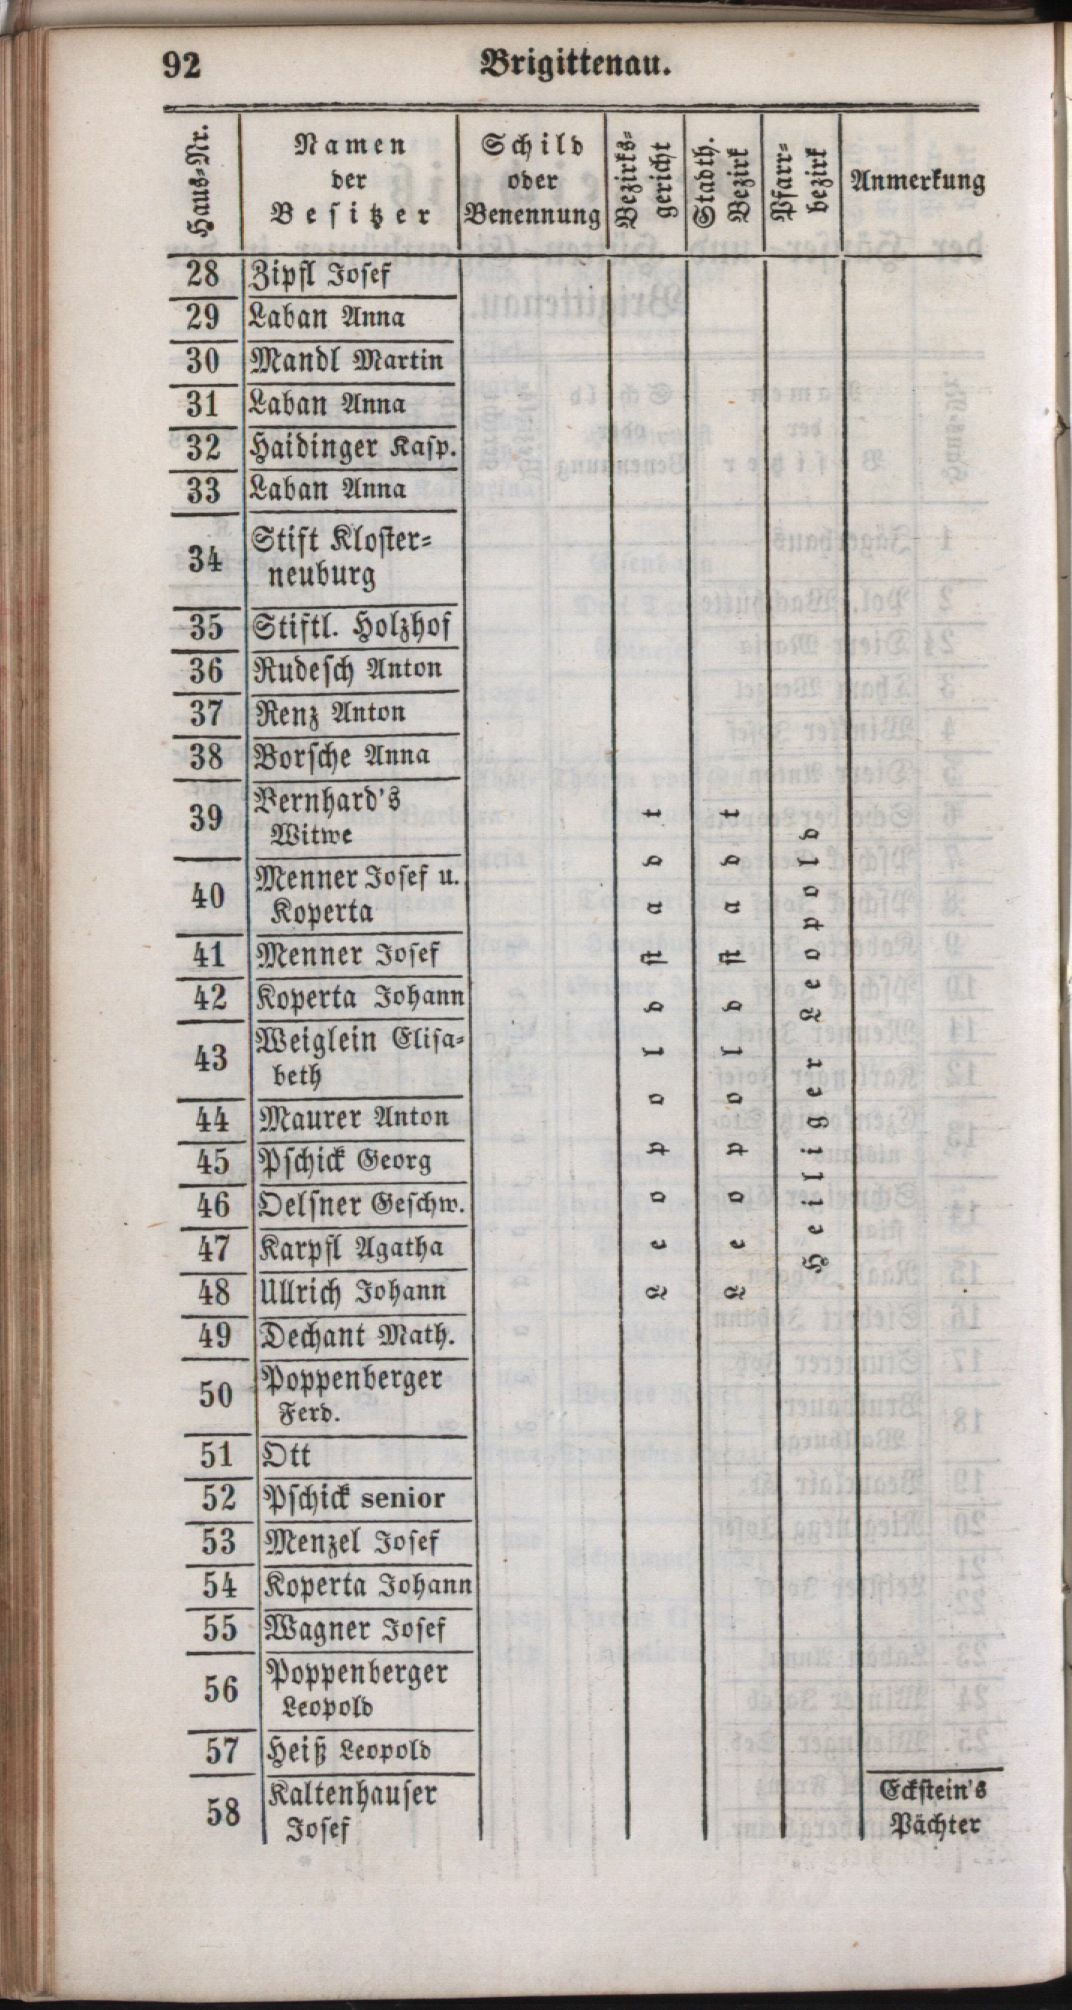 92 Brigittenau.
Haus-Nr.
Namen
der
Besitzer
Schild
oder
Benennung
Bezirks-
gericht
Stadth.
Bezirk
Pfarr-
bezirk
Anmerkung
28 Zipfl Josef
29 Laban Anna
30 Mandl Martin
31 Laban Anna
32 Haidinger Kasp.
33 Laban Anna
34 Stift Kloster-
neuburg
35 Stiftl. Holzhof
36 Rudesch Anton
37 Renz Anton
38 Borsche Anna
39 Bernhard's
Witwe
40 Menner Josef u.
Koperta
41 Menner Josef
42 Koperta Johann
43 Weiglein Elisa-
beth
44 Maurer Anton
45 Pschick Georg
46 Oelsner Geschw.
47 Karpfl Agatha
48 Ullrich Johann
49 Dechant Math.
50 Poppenberger
Ferd.
51 Ott
52 Pschick senior
53 Menzel Josef
54 Koperta Johann
55 Wagner Josef
56 Poppenberger
Leopold
57 Heiß Leopold
58 Kaltenhauser
Josef
Leopoldstadt
Leopoldstadt
Heiliger Leopold
Eckstein's
Pächter